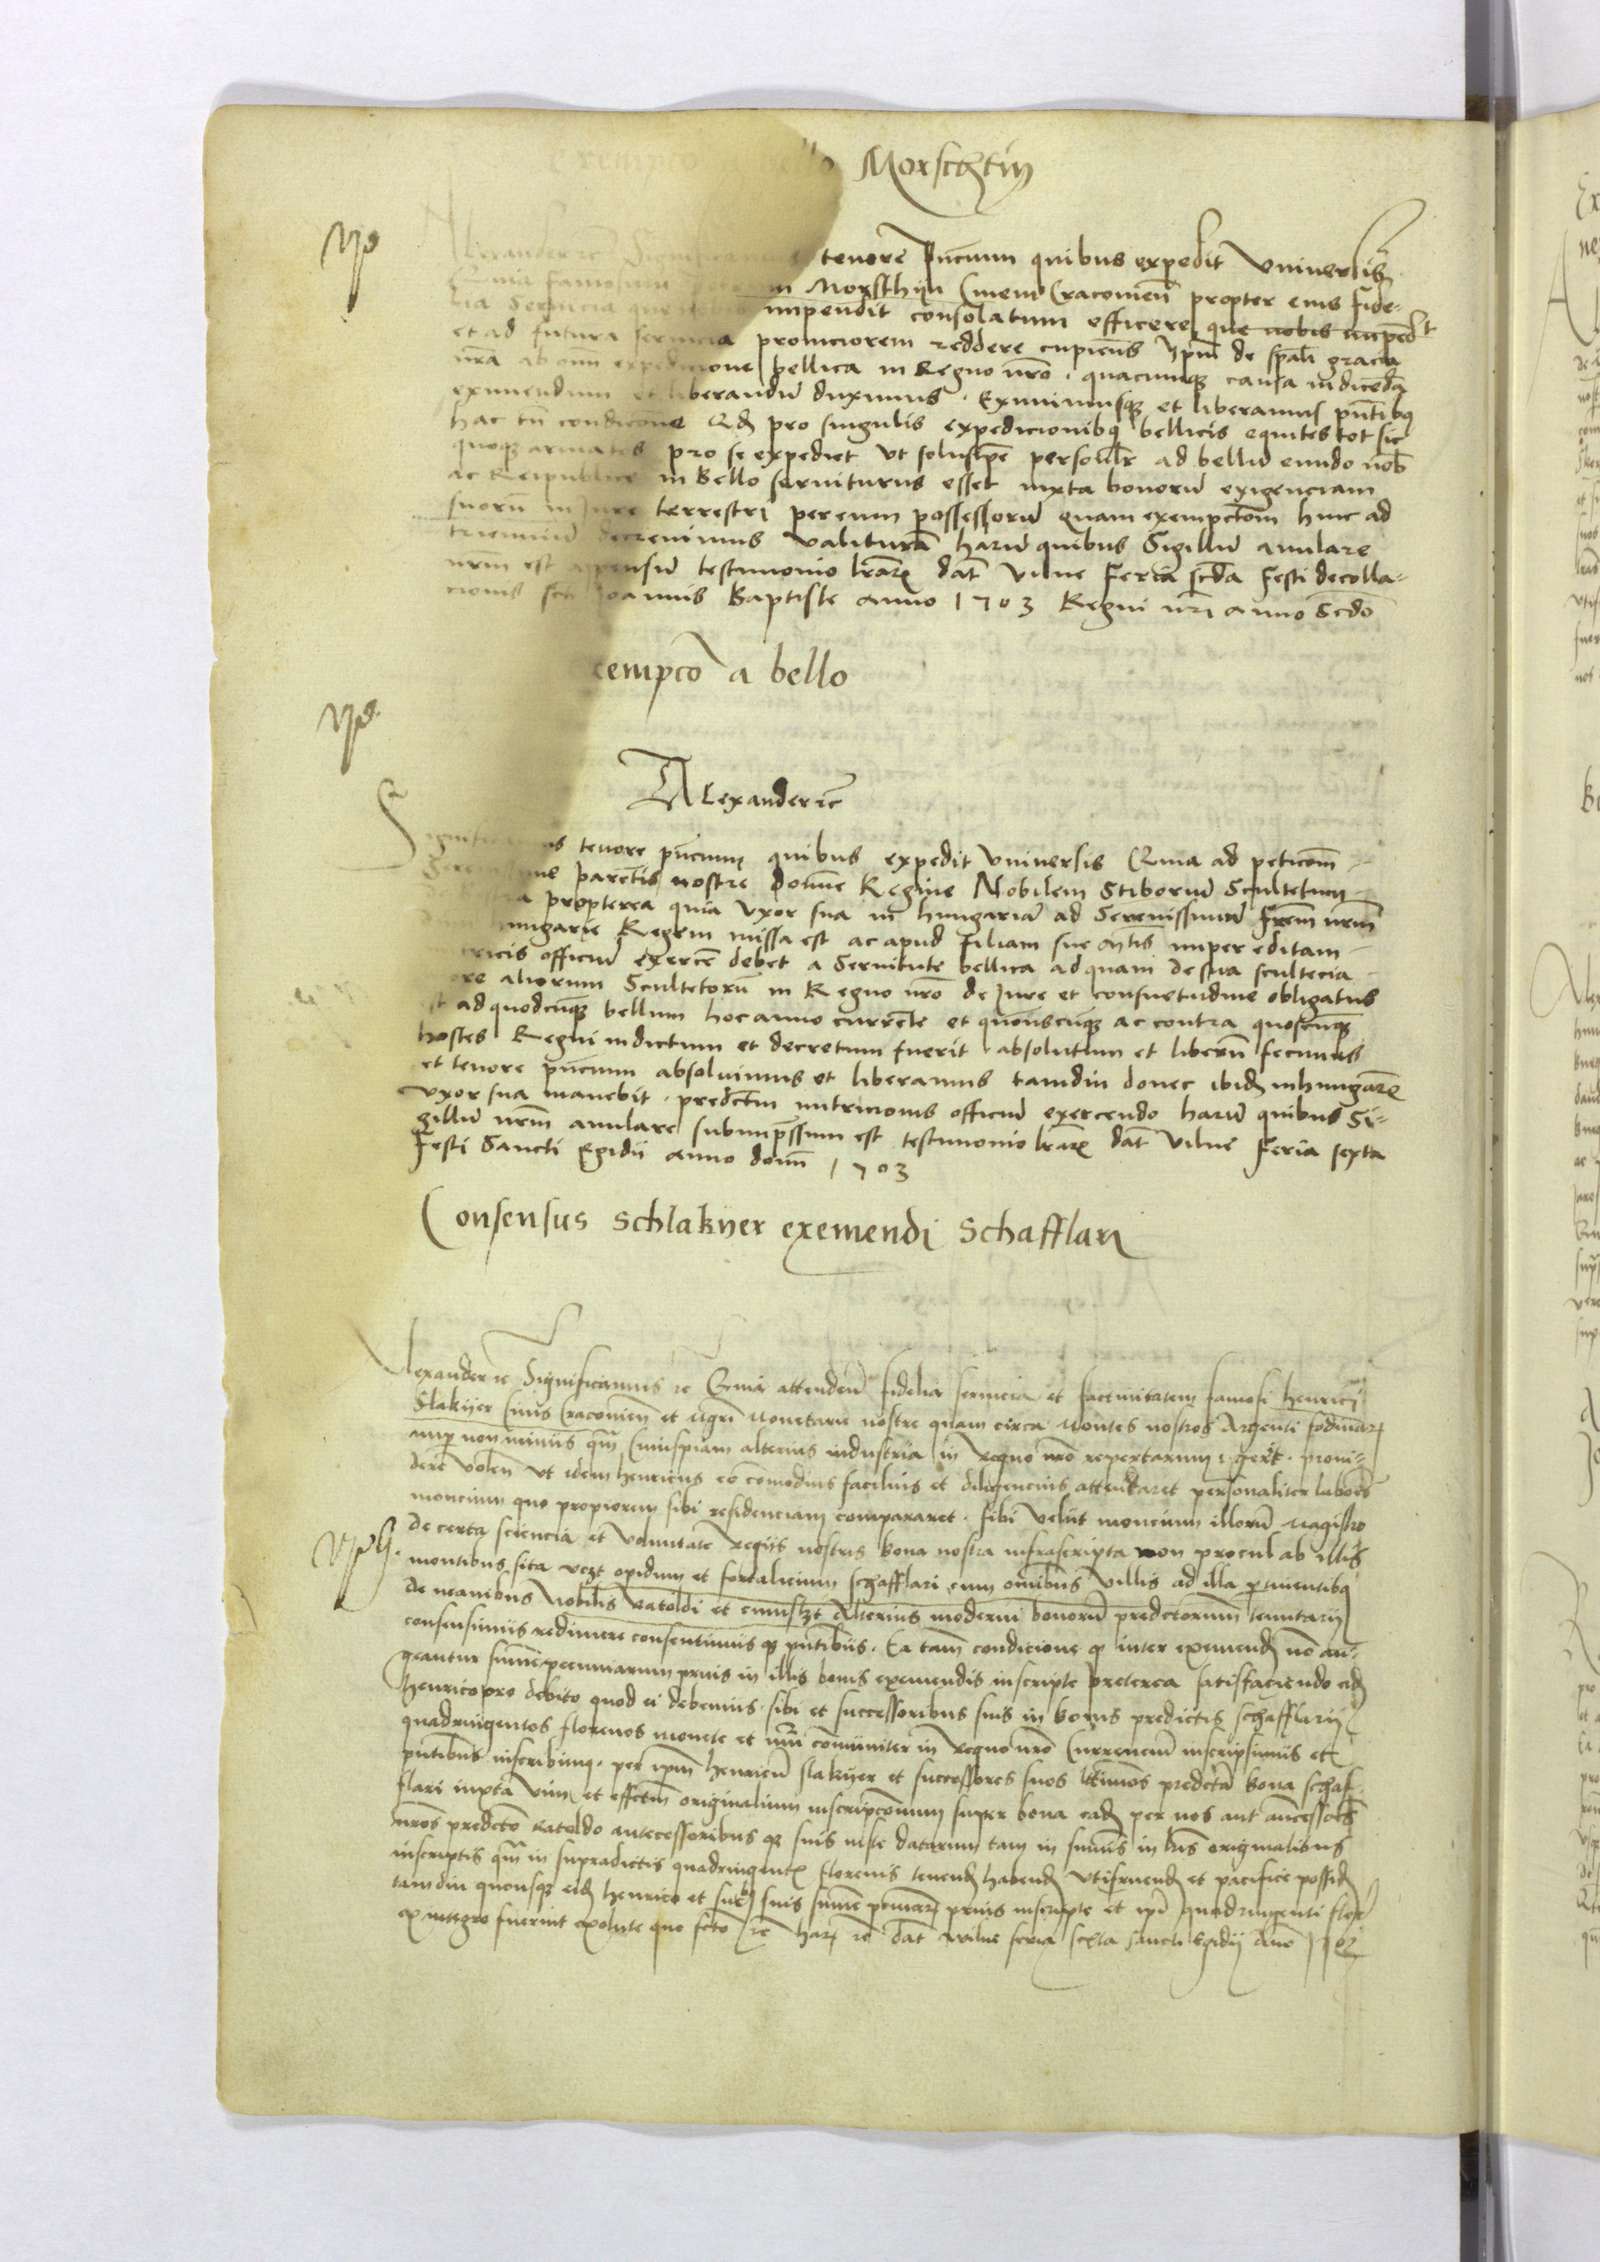 Exempco a bello Morschtin
Alexander rc̄ Significamus tenore p̄ncium quibus expedit Universis
Quia famosum m Morsthijn Civem Cracovien̄ propter eius fide-
lia Servicia que nobis impendit consolatum efficere que nobis impend̄t
et ad futura servicia promciorem reddere cupiens Ip̄m de sp̄ali gracia
n̄ra ab omi expedicione bellica in Regno n̄ro quacumq̨ causa indicēda
eximendum et liberandū duximus. Eximimusq̨ et liberamus p̄ntibq̨
hac tn̄ condicōne Qd̨ pro singulis expedicionibq̨ bellicis equites tot sic
quoq̨ armatos pro se expediet ut solusip̄e personalr̄ ad bellū eundo nob̄
ac Reipublice in Bello serviturus esset iuxta bonorū exigenciam
suorū in Jure terrestri per eum possessorū quam exempctōm hinc ad
triennium decrevimus valiturā harū quibus Sigillū anulare
n̄rm est appensū testimonio lr̄arꝫ dat̄ Vilne Feria sc̄da Festi decolla-
cionis sc̄ti Joannis Baptiste anno 1503 Regni n̄ri anno Sc̄do
Exempco a bello
Alexander rc̄
Significamus tenore p̄ncium quibus expedit Universis Quia ad peticōm
Serenissime parētis nostre Domne Regine Nobilem Stiborium Scultetum
propterea quia Uxor sua in hungariā ad Serenissimū Fr̄em n̄rm
hungarie Regem missa est ac apud filiam sue M̄tis nuper editam
nutricis officiū exercē debet a Servitute bellica ad quam de sua scultecia
more aliorum Scultetorū in Regno n̄ro de Jure et consuetudine obligatus
est ad quodcūq̨ bellum hoc anno currēte et quouscūq̨ ac contra quoscūq̨
hostes Regni indictum et decretum fuerit absolutum et liberū fecimus
et tenore p̄ncium absolvimus et liberamus tamdiu donec ibid̨ in hungarie
Uxor sua manebit. predc̄tm nutricionis officiū exercendo harū quibus Si-
gillū n̄rm anulare subimp̄ssum est testimonio lr̄arꝫ dat̄ Vilne Feria sexta
Festi Sancti Egidii anno domī 1503
Consensus Schlakyer exemendi Schafflari
Alexander rc̄ Significamus rc̄ Quia attenden̄ fidelia servicia et factivitatem famosi henrici
Slakyer Civis Cracovien̄ et Mgr̄i Monetarie nostre quam circa Montes nostros Argenti fodinarꝫ
nup̄ non minus qm̄ Cuiuspiam alterius industria in Regno n̄ro repertarum gerit. provi-
dere volen̄ ut idem henricus eo comodius facilius et diligencius attentaret personaliter labores
moncium quo propiorem sibi residenciam compararet. sibi velut moncium illorū Magistro
de certa sciencia et voluntate Regiis nostris bona nostra infrascripta non procul ab illis
montibus sita vcꝫt opidum et fortalicium Schafflari cum omībus villis ad illa ꝑtinentibq̨
de manibus Nobilis Ratoldi et cuiuslꝫt Alterius moderni bonorū predictorum tenutarii
consensimus redimere consentimus q̨ p̄ntibus. Ea tam̄ condicione q̨ inter exemend̨ nō au-
geantur sum̄e pecuniarum prius in illis bonis exemendis inscripte preterea satisfaciendo eid̨
henrico pro debito quod ei debemus. sibi et successoribus suis in bonis predictis Schafflarij
quadringentos florenos monete et nūi comūniter in Regno n̄ro Currencium inscripsimus et
p̄ntibus inscribimq̨. per ip̄m henricū Slakyer et successores suos l̄timos predicta bona Schaf-
flari iuxta vim et effectm̄ originalium inscripcōnum super bona ead̨ per nos aut ancessores
n̄ros predc̄to Ratoldo antecessoribus q̨ suis iuste datarum tam in sum̄is in l̄ris originalibus
inscriptis qm̄ in supradictis quadringentꝫ florenis tenend̨ habend̨ utifruend̨ et pacifice possid̨
tamdiu quousq̨ eid̨ henrico et succ̄ suis sum̄e p̄cuniarꝫ prius inscripte et ip̄i quadringenti flor̄
ex integro fuerint exolute quo fc̄to rc̄ harꝫ rc̄ dat̄ Vilne feria sexta sancti Egidij Anō 1503